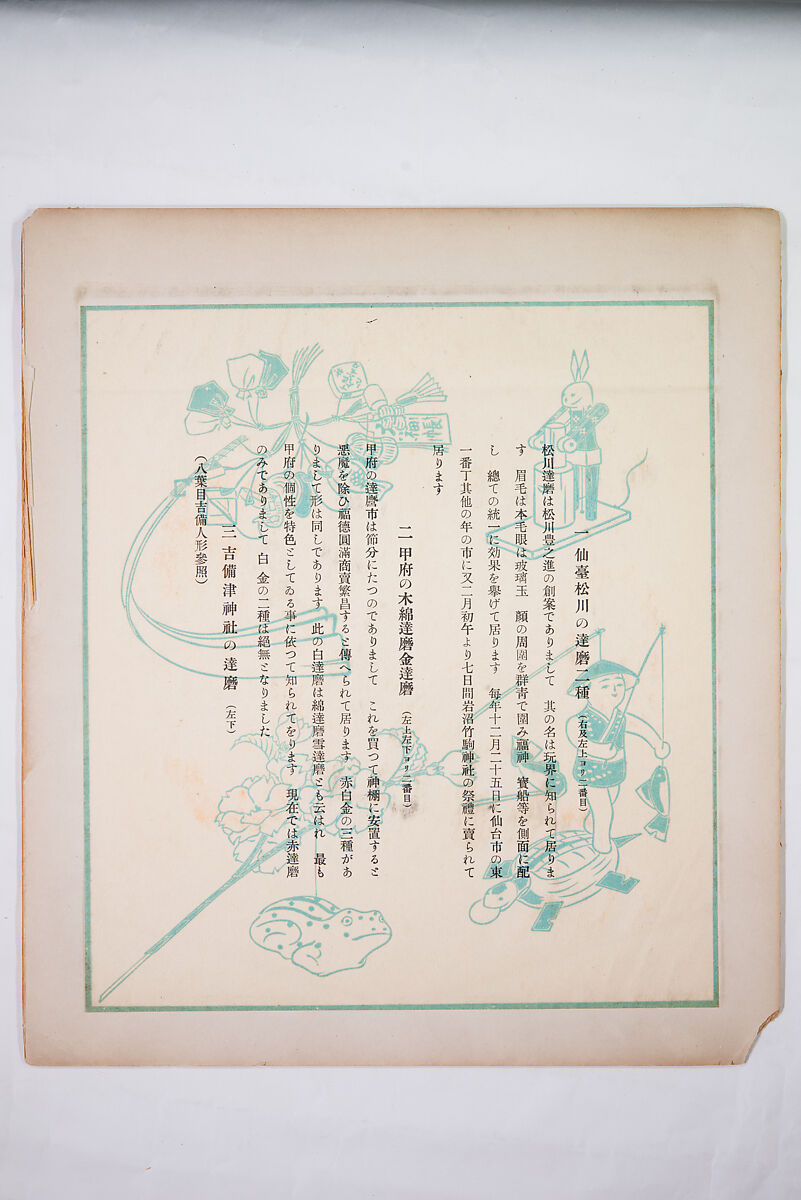 一 仙臺松川の達磨二種 (右及左上ヨリ二番目)
松川達磨は松川豊之進の創案でありまして 其の名は玩界に知られて居りま
す 眉毛は本毛眼は玻璃玉 顔の周圍を群青で圍み福神 寳船等を側面に配
し 總ての統一に効果を擧げて居ります 毎年十二月二十五日に仙台市の東
一番丁其他の年の市に又二月初午より七日間岩沼竹駒神社の祭禮に賣られて
居ります
二 甲府の木綿達磨金達磨 (左上左下ヨリ二番目)
甲府の達磨市は節分にたつのでありまして これを買つて神棚に安置すると
惡魔を除ひ福德圓滿商賣繁昌すると傳へられて居ります 赤白金の三種があ
りまして形は同しであります 此の白達磨は綿達磨雪達磨とも云はれ 最も
甲府の個性を特色としてゐる事に依つて知られてをります 現在では赤達磨
のみでありまして 白 金の二種は絕無となりました
三 吉備津神社の達磨 (左下)
(八葉目吉備人形參照)